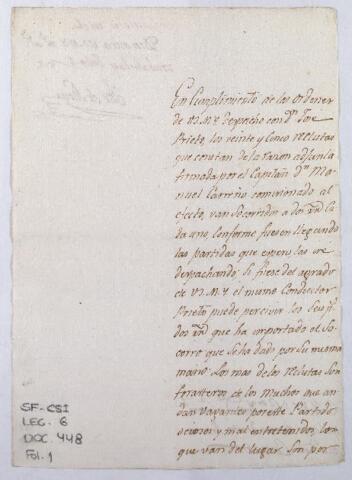 En Cumplimiento de las Ordenes
de V.M.Y. despacho con Dn. Jose
Prieto, los veinte y Cinco reclutas
que constan de la razon adjunta
firmada por el Capitan Dn. Ma
nuel Carreño comisionado al
efecto, van Socorridos a dos rrs. Ca
da uno, conforme fuesen llegando
las partidas que espero, las iré
despachando; si fuese del agrado
de V.M.Y. el mismo Conductor
Prieto puede percivir los
que ha importado el So
corro que se ha dado por su misma
mano. Los mas de los reclutas son
forasteros de los muchos que an
dan vagantes por este Partido
ociosos y mal entretenidos, los
que van del lugar son por
SF-CSI
LEG. 6
DOC. 448
Fol. 1